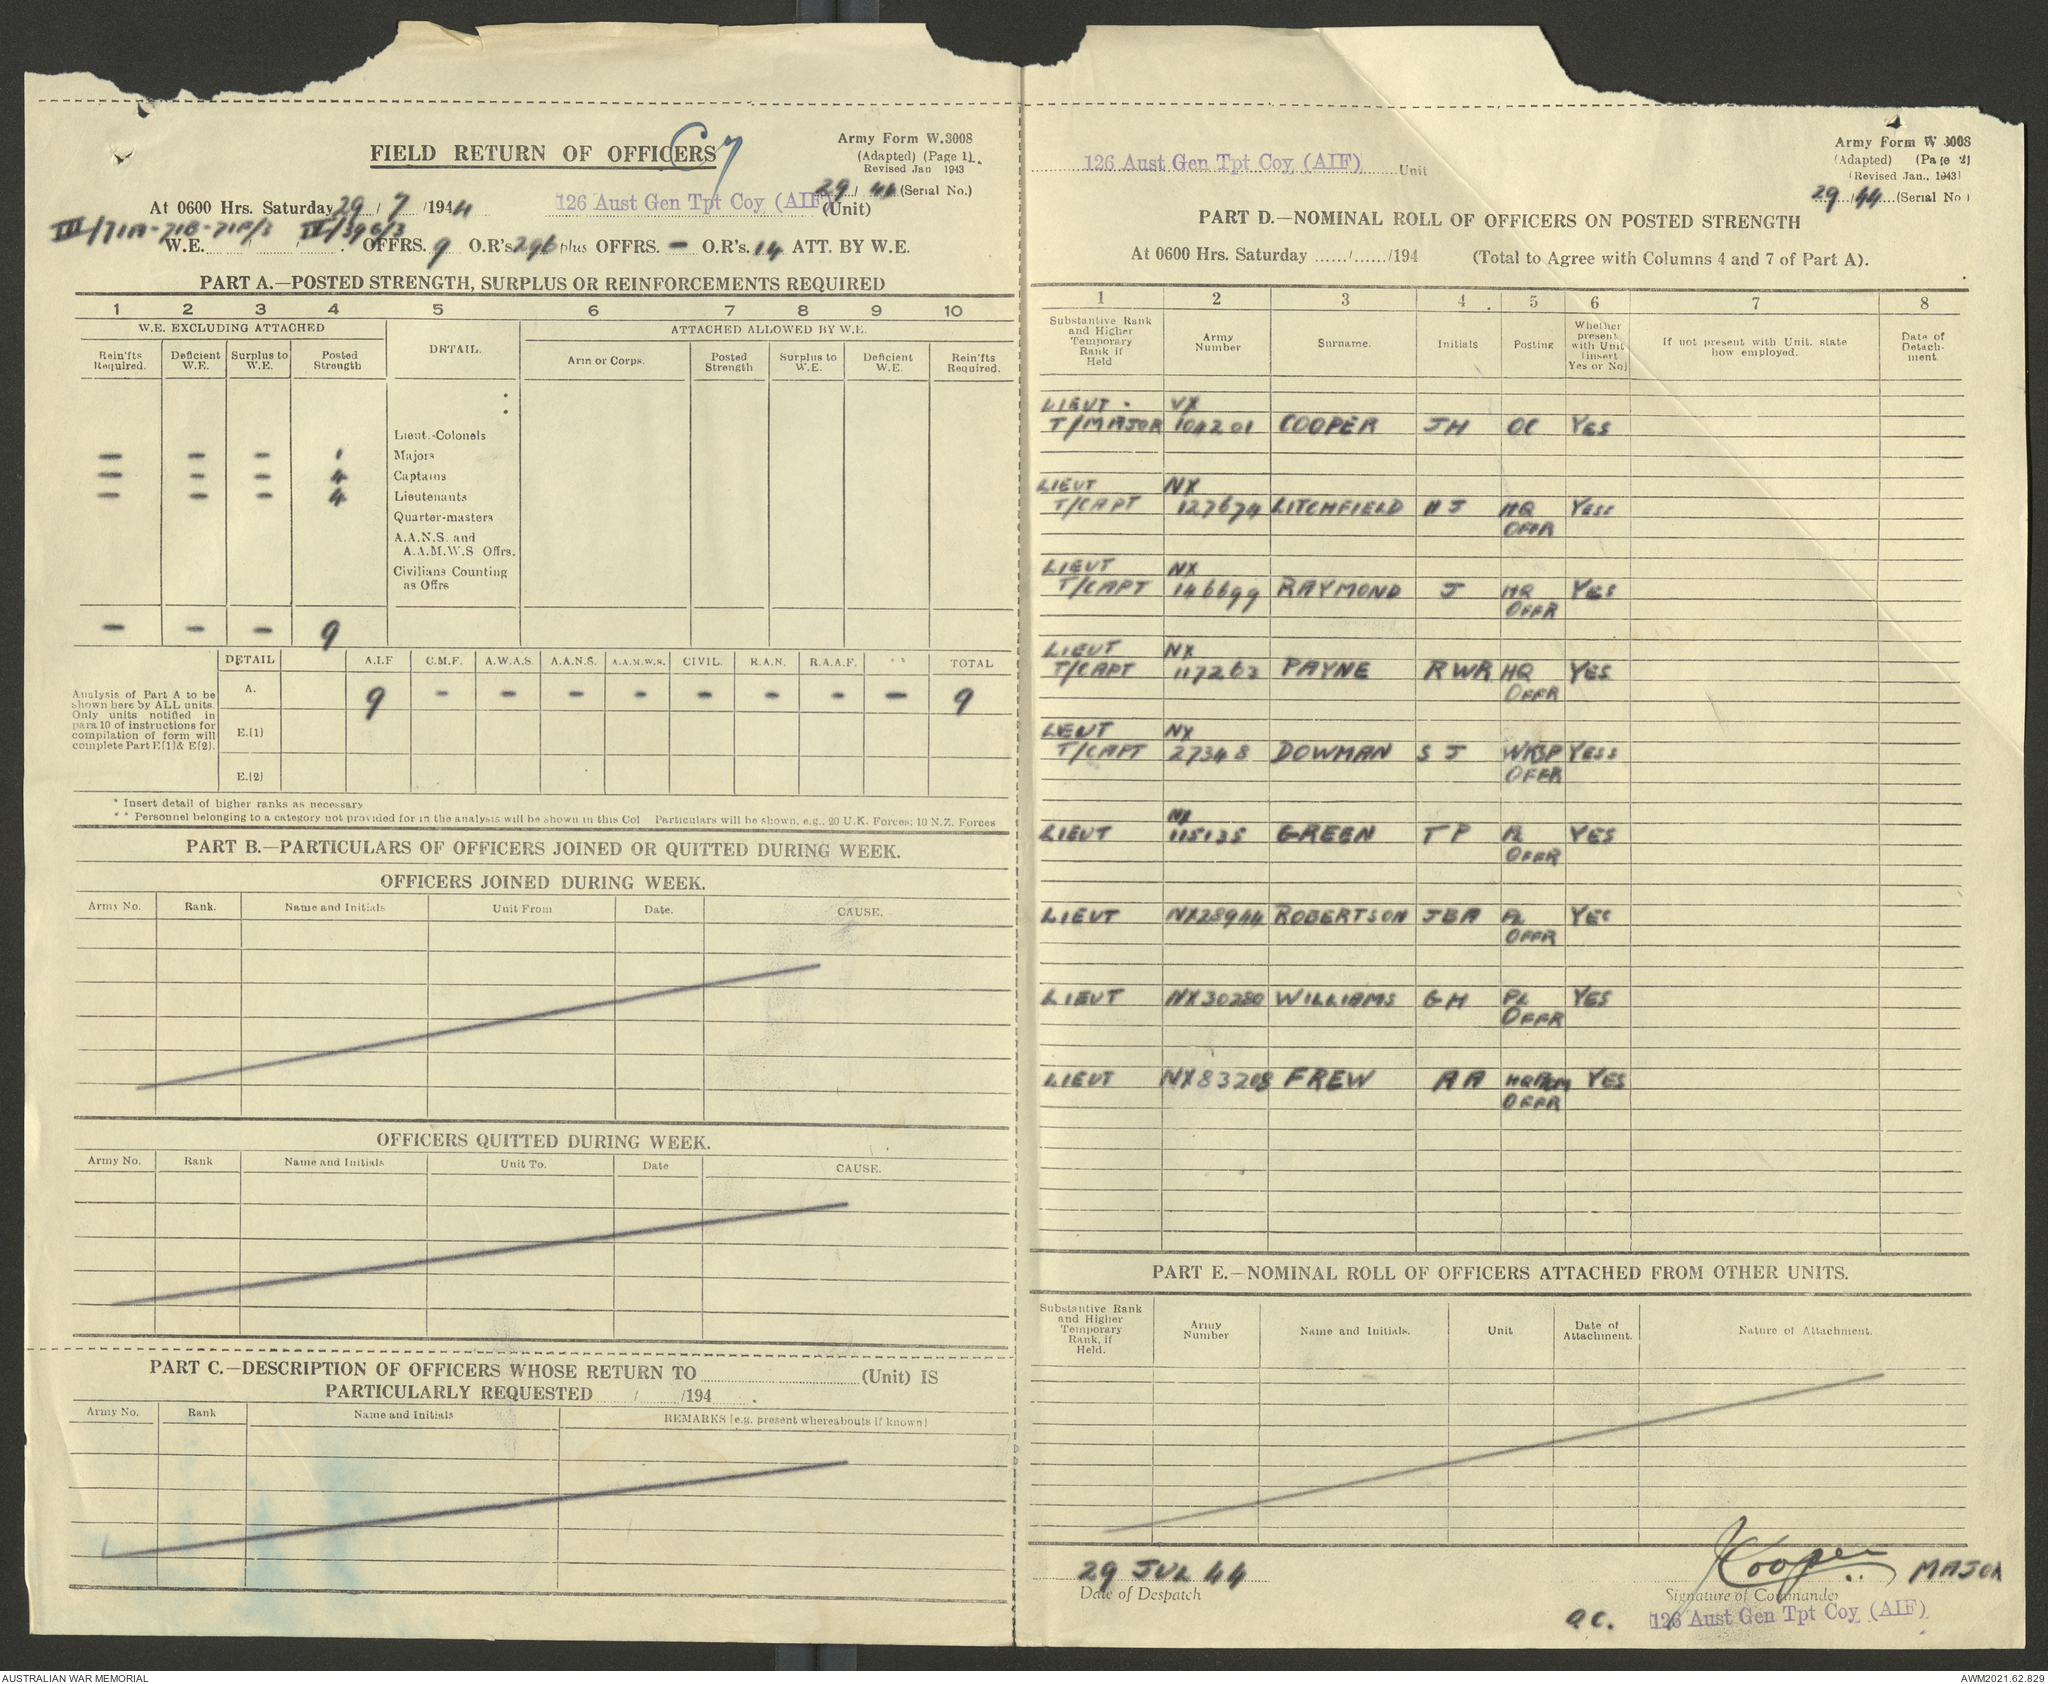 FIELD RETURN OF OFFICERS
C7
Army Form W.3008
(Adapted) (Page 1).
Revised Jan 1943
29/44 (Serial No.)
At 0600 Hrs. Saturday 29/7/1944
126 Aust Gen Tpt Coy (AIF)
(Unit)
III/71A-71B-71F/3 IV/39G/3
W.E. OFFRS. 9 O.R's 296 plus OFFRS. - O.R's. 14 ATT. BY W.E.
PART A.—POSTED STRENGTH, SURPLUS OR REINFORCEMENTS REQUIRED
1 2 3 4 5 6 7 8 9 10
W.E. EXCLUDING ATTACHED
DETAIL.
ATTACHED ALLOWED BY W.E.
Rein'fts Required.
Deficient W.E.
Surplus to W.E.
Posted Strength
Arm or Corps.
Posted Strength
Surplus to W.E.
Deficient W.E.
Rein'fts Required.
Lieut.-Colonels
— — — 1 Majors
— — — 4 Captains
— — — 4 Lieutenants
Quarter-masters
A.A.N.S. and
A.A.M.W.S Offrs.
Civilians Counting
as Offrs
— — — 9
DETAIL A.I.F C.M.F. A.W.A.S. A.A.N.S. A.A.M.W.S. CIVIL. R.A.N. R.A.A.F. ** TOTAL
A. 9 - - - - - - - - 9
Analysis of Part A to be
shown here by ALL units.
Only units notified in
para 10 of instructions for
compilation of form will
complete Part E(1)& E(2).
E.(1)
E.(2)
* Insert detail of higher ranks as necessary
** Personnel belonging to a category not provided for in the analysis will be shown in this Col Particulars will be shown, e.g., 20 U.K. Forces; 10 N.Z. Forces
PART B.—PARTICULARS OF OFFICERS JOINED OR QUITTED DURING WEEK.
OFFICERS JOINED DURING WEEK.
Army No. Rank. Name and Initials Unit From Date. CAUSE.
OFFICERS QUITTED DURING WEEK.
Army No. Rank Name and Initials Unit To. Date CAUSE.
PART C.—DESCRIPTION OF OFFICERS WHOSE RETURN TO (Unit) IS
PARTICULARLY REQUESTED / /194 .
Army No. Rank Name and Initials REMARKS (e.g. present whereabouts if known)
126 Aust Gen Tpt Coy (AIF) Unit
Army Form W 3008
(Adapted) (Page 2)
(Revised Jan., 1943)
29/44 (Serial No)
PART D.—NOMINAL ROLL OF OFFICERS ON POSTED STRENGTH
At 0600 Hrs. Saturday ....../....../194 (Total to Agree with Columns 4 and 7 of Part A).
1 2 3 4 5 6 7 8
Substantive Rank
and Higher
Temporary
Rank if
Held
Army Number
Surname.
Initials
Posting
Whether
present
with Unit
(insert
Yes or No)
If not present with Unit, state
how employed.
Date of
Detach-
ment.
LIEUT. VX
T/MAJOR 104201 COOPER JH OC YES
LIEUT NX
T/CAPT 127674 LITCHFIELD HJ HQ YES
OFFR
LIEUT NX
T/CAPT 146699 RAYMOND J HQ YES
OFFR
LIEUT NX
T/CAPT 117263 PAYNE RWR HQ YES
OFFR
LEUT NX
T/CAPT 27348 DOWMAN SJ WKSP YES
OFFR
NX
LIEUT 115135 GREEN TP PL YES
OFFR
LIEUT NX28944 ROBERTSON JBA PL YES
OFFR
LIEUT NX30280 WILLIAMS GH PL YES
OFFR
LIEUT NX83208 FREW AA YES
OFFR
PART E.—NOMINAL ROLL OF OFFICERS ATTACHED FROM OTHER UNITS.
Substantive Rank
and Higher
Temporary
Rank, if
Held.
Army Number
Name and Initials.
Unit
Date of
Attachment.
Nature of Attachment.
29 JUL 44
Date of Despatch
JCooper MAJOR
Signature of Commander
O.C. 126 Aust Gen Tpt Coy (AIF)
AUSTRALIAN WAR MEMORIAL
AWM2021.62.829